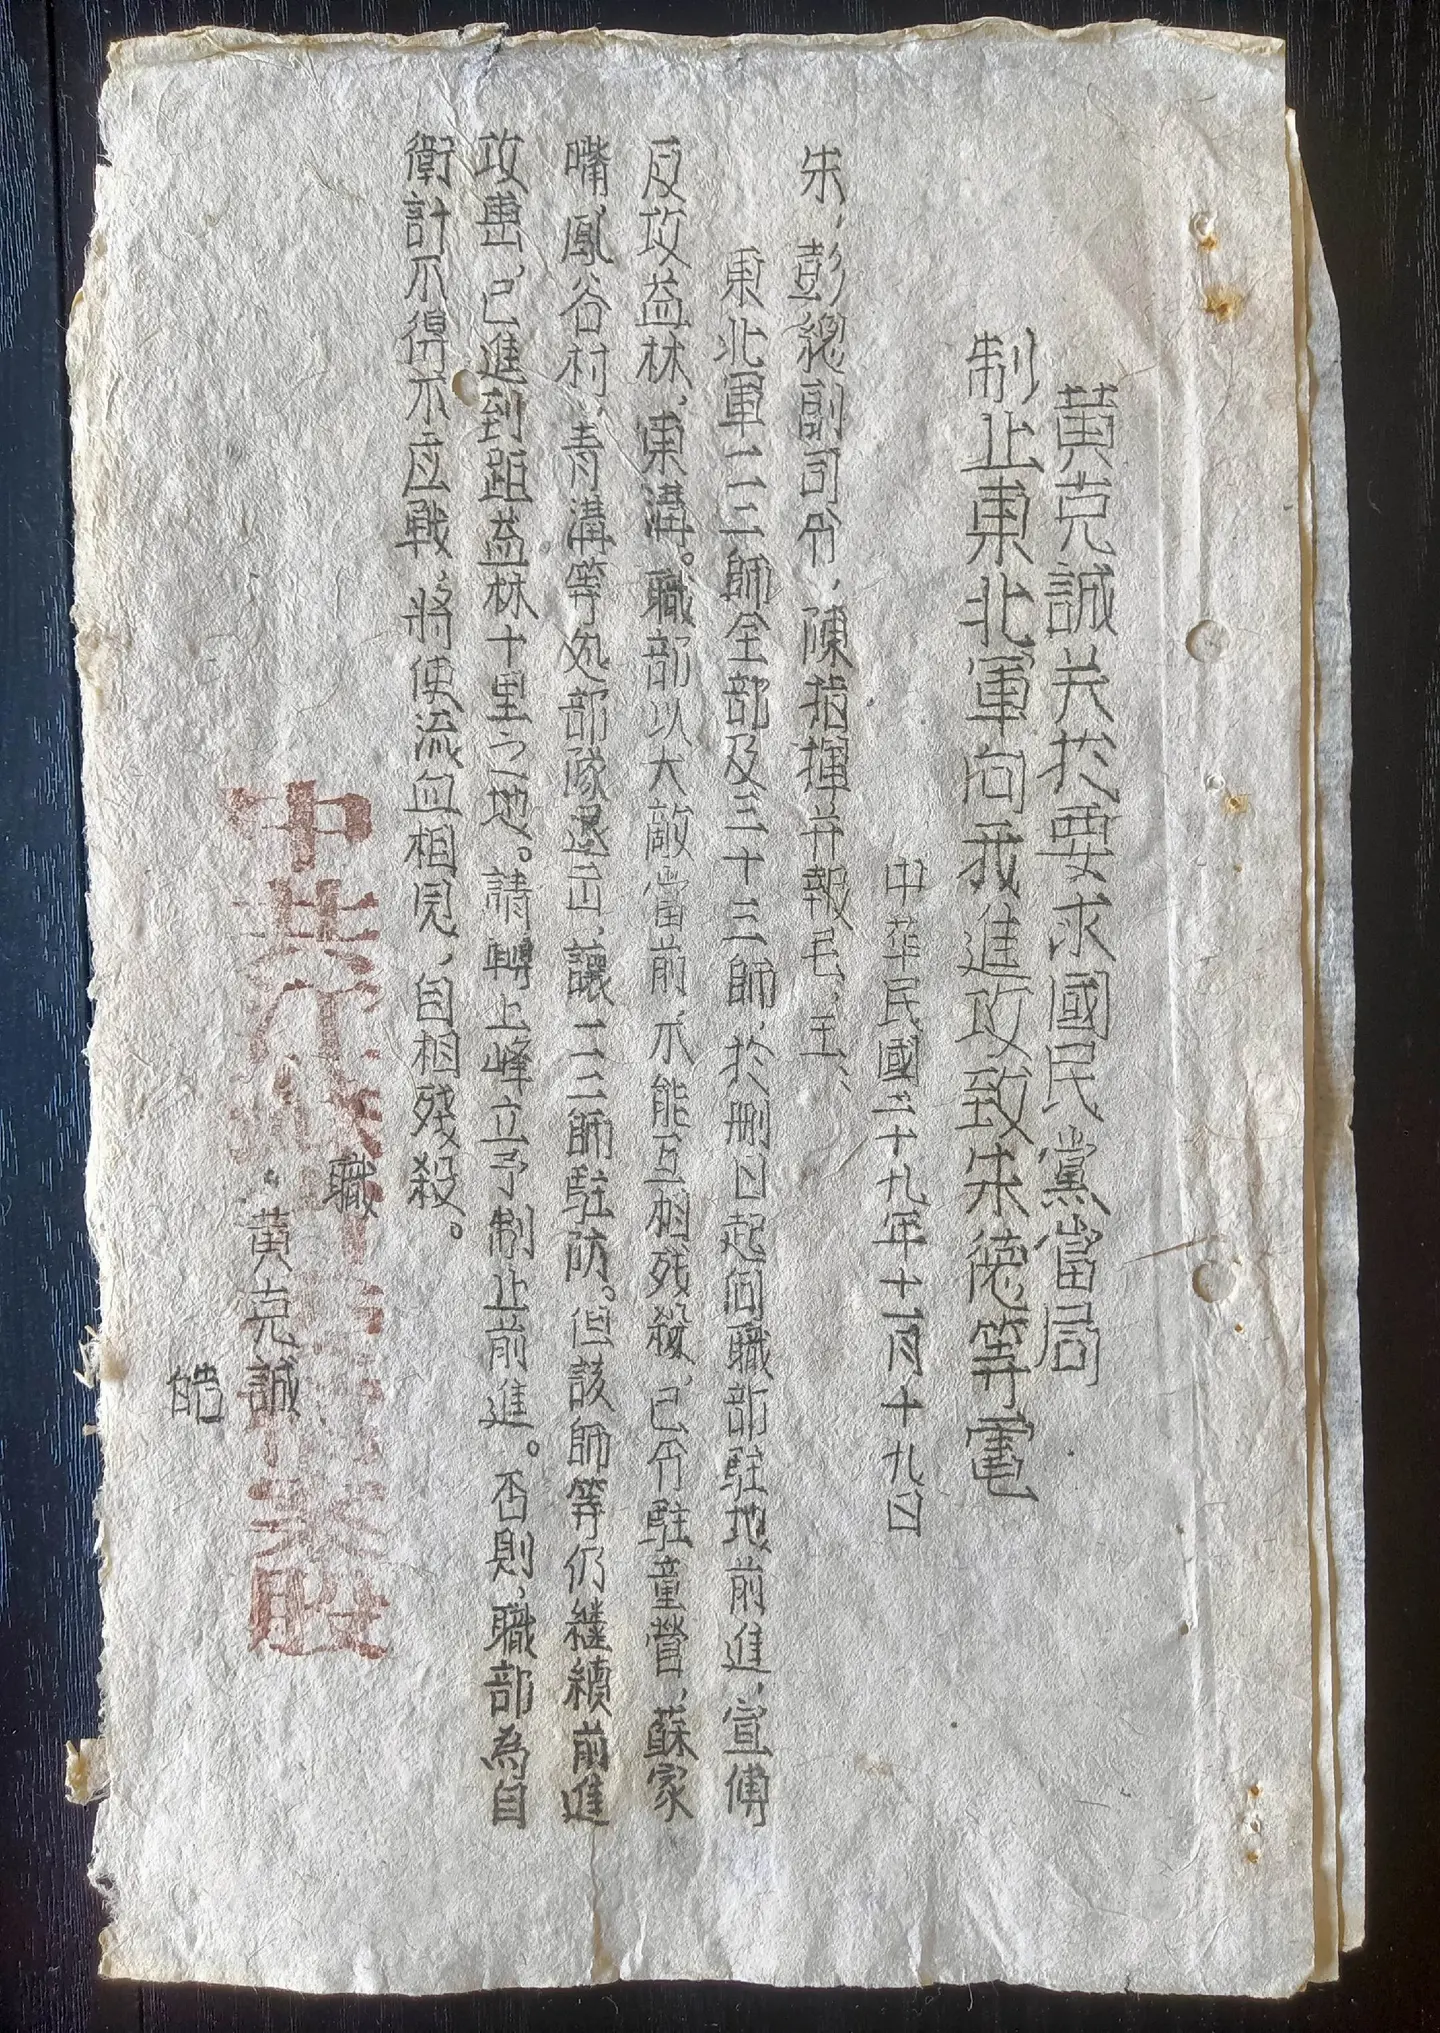 黄克誠关於要求國民黨當局
制止東北軍向我進攻致朱德等電
中華民國二十九年十一月十九日
朱，彭總副司令，陳指揮并報毛，王、
東北軍一一二師全部及三十三師，於删日起向職部駐地前進，宣傅
反攻益林，東溝。職部以大敵當前，不能互相残殺，已令駐童營，蘇家
嘴，鳳谷村，青溝等処部隊退出，讓一一二師駐防。但該師等仍継續前進
攻击，已進到距益林十里之地。請轉上峰立予制止前進。否則，職部為自
衛計不得不应戰，將使流血相見，自相殘殺。
職
黄克誠
皓
中共